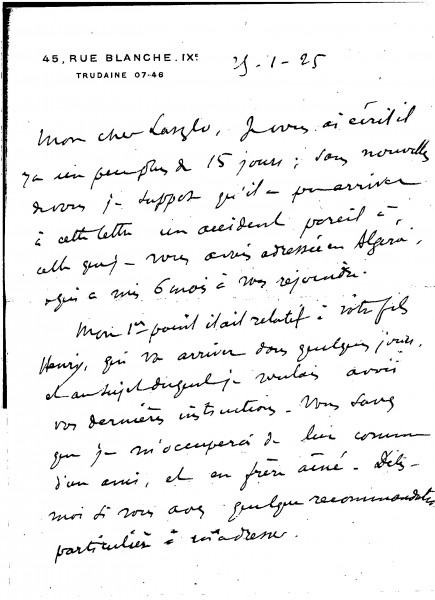 45, RUE BLANCHE. IXe
TRUDAINE 07-46
25-1-25
Mon cher Laszlo, Je vous ai écrit il
y a un peu plus de 15 jours ; sans nouvelles
de vous je suppose qu'il a pu arriver
à cette lettre un accident pareil à
celle que je vous avais adressée en
et qui a mis 6 mois à vous rejoindre.
Mon 1er point était relatif à votre fils
Henry, qui va arriver dans quelques jours,
et au sujet duquel je voulais avoir
vos dernières instructions - Vous savez
que je m'occuperai de lui comme
d'un ami, et en frère aîné - Dites-
moi si vous avez quelque recommandation
particulière à m'adresser.